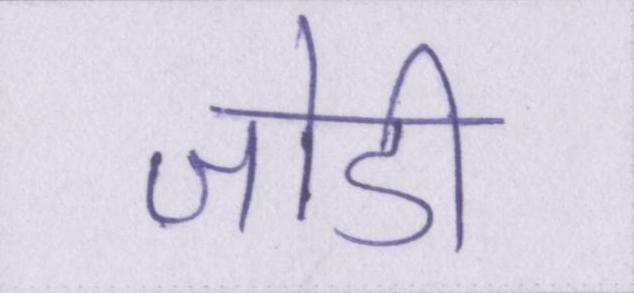 जोडी